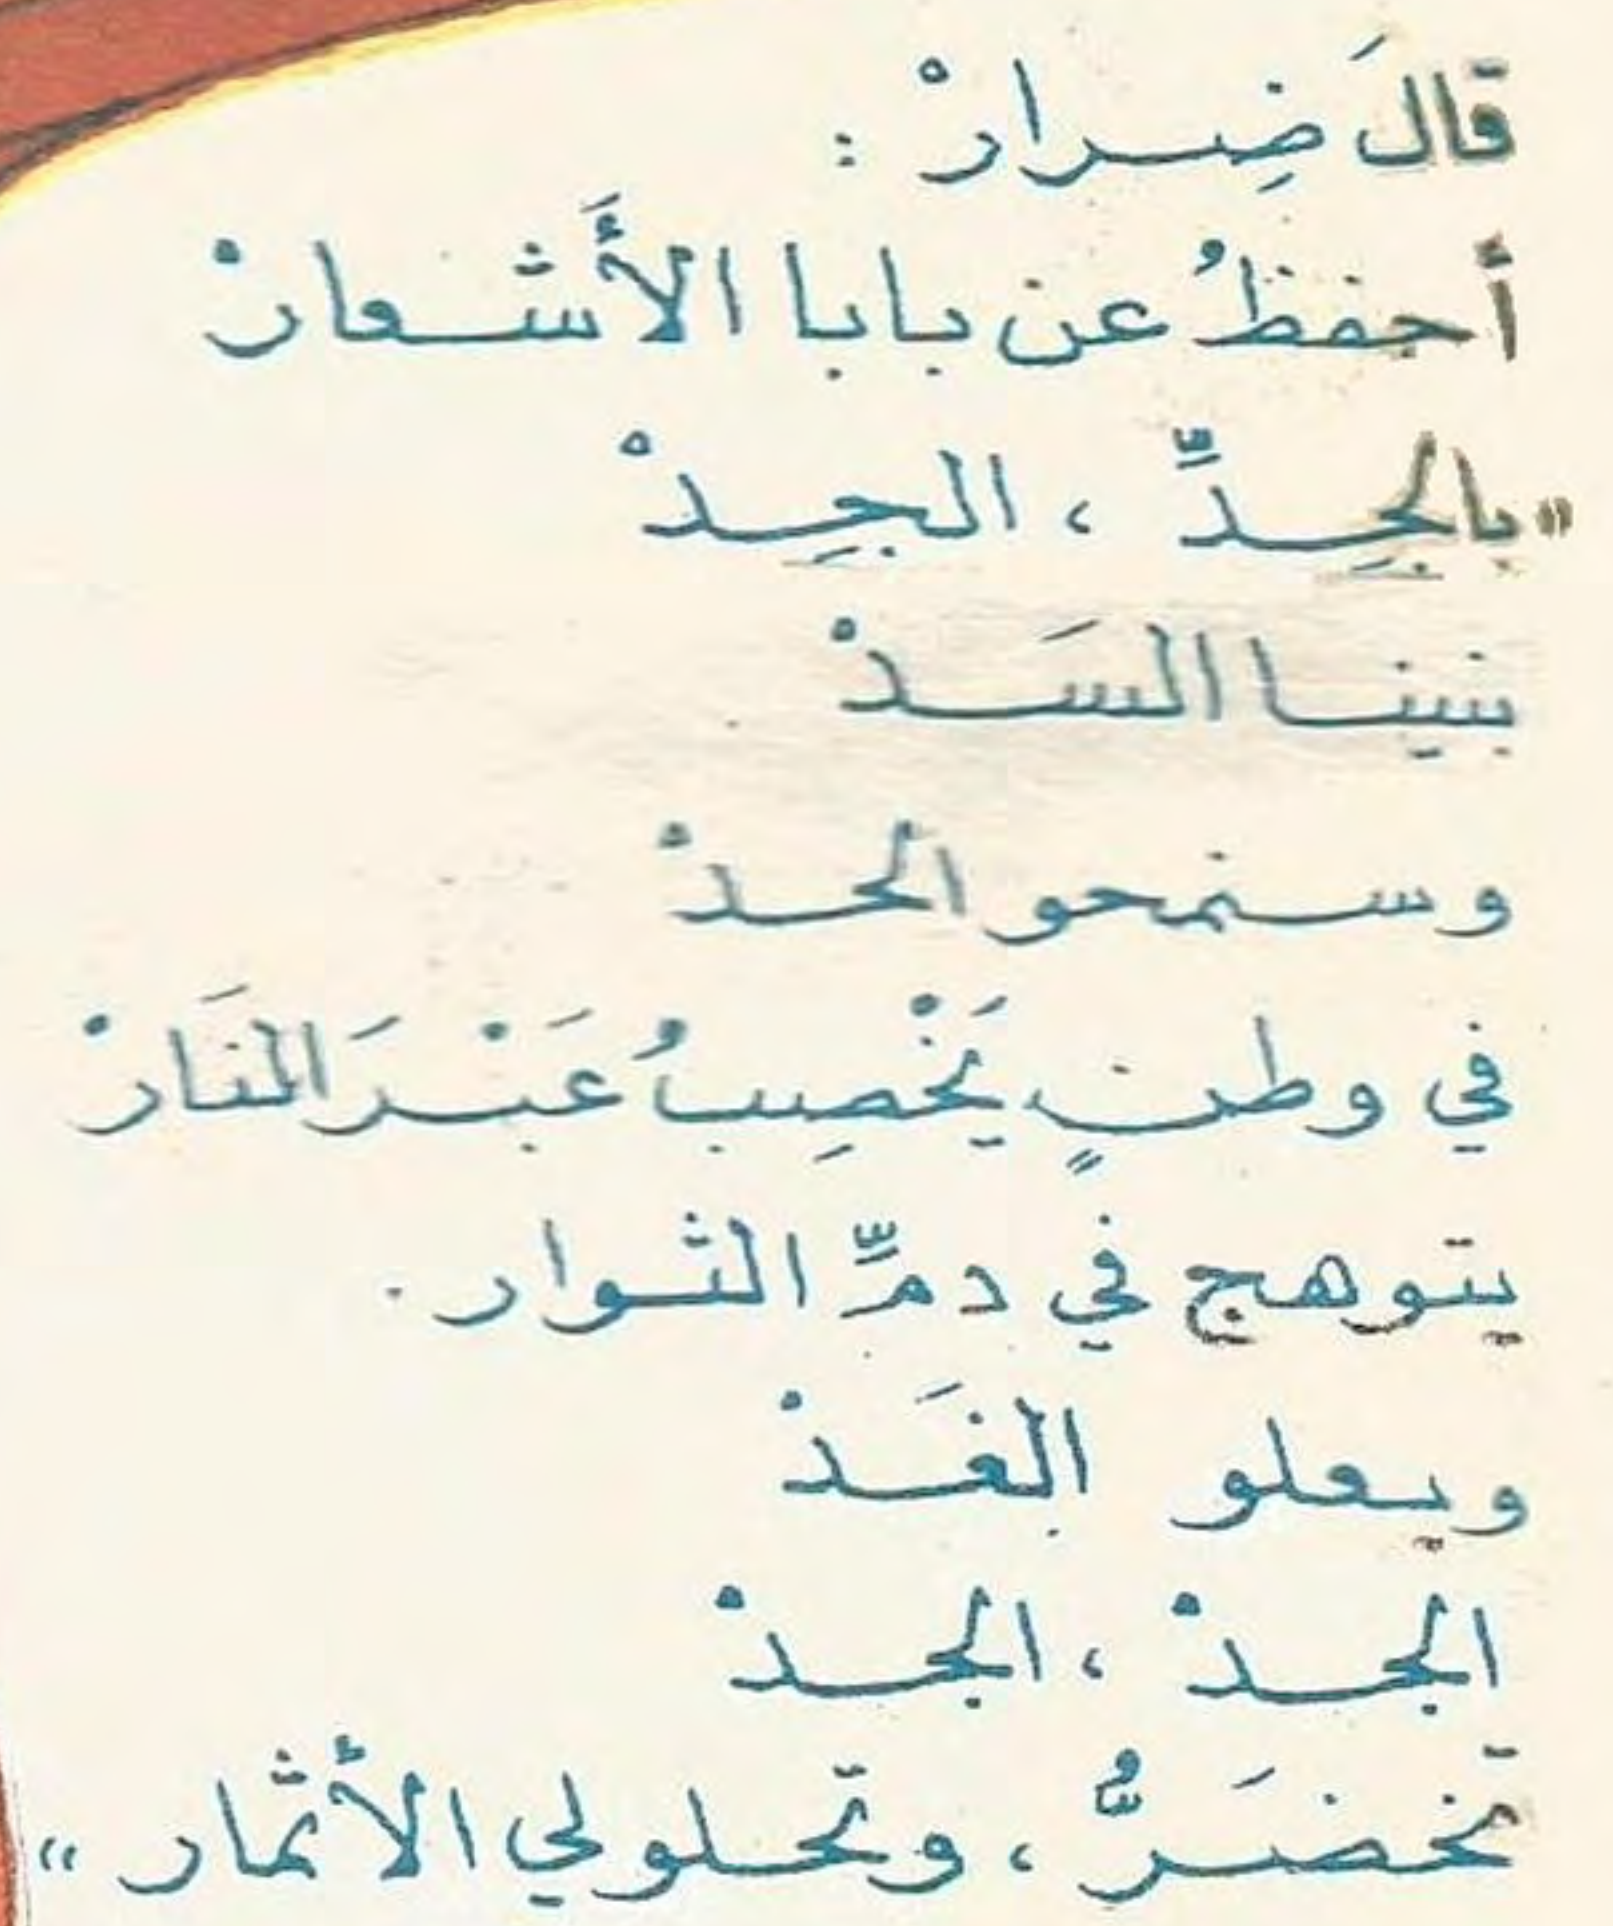 قالَ ضِرارْ :
أحفظُ عن بابا الأَشعارْ
« بالجِدِّ ، الجِدْ
بنينا السَدْ
وسنمحو الحدْ
في وطنٍ يَخْصِبُ عَبْرَ النَارْ
يتوهج في دمِّ الثوار .
ويعلو الغَدْ
الجدْ ، الجدْ
تخضَرُّ ، وتحلولي الأثمار »